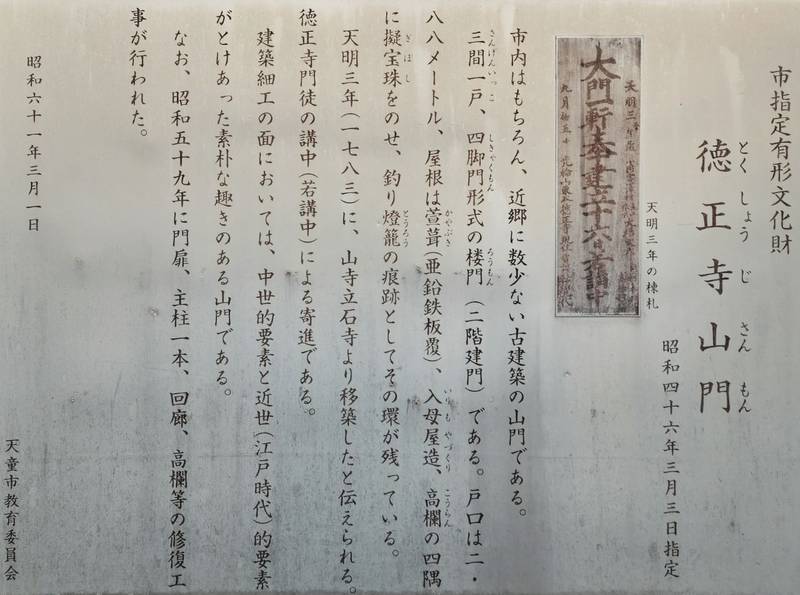 市指定有形文化財
徳正寺山門
とくしょうじさんもん
昭和四十六年三月三日指定
天明三年の棟札
大門一軒奉建立十六日若講中
市内はもちろん、近郷に数少ない古建築の山門である。
三間一戸、四脚門形式の楼門（二階建門）である。戸口は二・
さんげんいっこ しきゃくもん ろうもん
八八メートル、屋根は萱葺（亜鉛鉄板覆）、入母屋造、高欄の四隅
かやぶき いりもやづくり こうらん
に擬宝珠をのせ、釣り燈籠の痕跡としてその環が残っている。
ぎぼし とうろう
天明三年（一七八三）に、山寺立石寺より移築したと伝えられる。
徳正寺門徒の講中（若講中）による寄進である。
建築細工の面においては、中世的要素と近世（江戸時代）的要素
がとけあった素朴な趣きのある山門である。
なお、昭和五十九年に門扉、主柱一本、回廊、高欄等の修復工
事が行われた。
昭和六十一年三月一日
天童市教育委員会